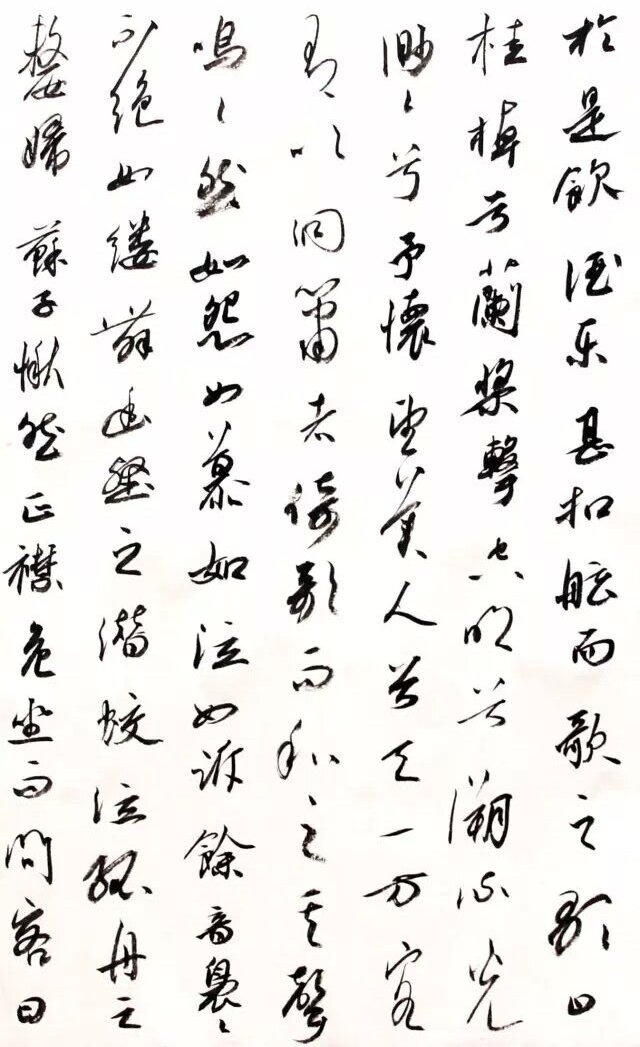 於是飲酒乐甚扣舷而歌之歌曰
桂棹兮蘭槳擊空明兮溯流光
渺々兮予懷望美人兮天一方客
有吹洞簫者倚歌而和之其聲
嗚々然如怨如慕如泣如訴餘音裊々
不绝如缕舞幽壑之潜蛟泣孤舟之
嫠婦 蘇子愀然正襟危坐而問客曰